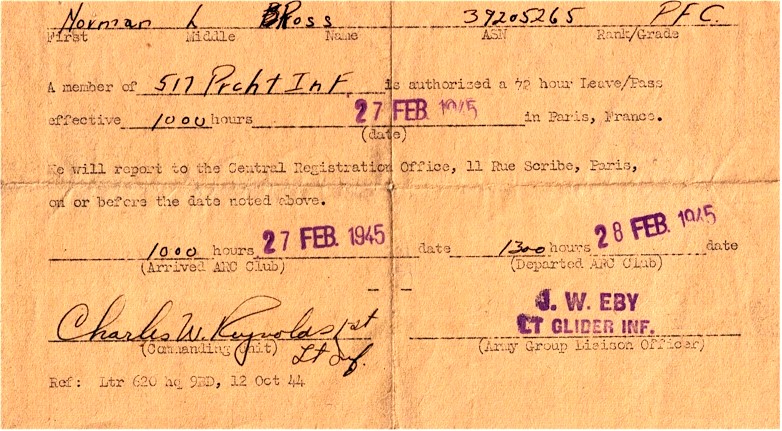 Norman L Ross 39205265 PFC.
First Middle Name ASN Rank/Grade
A member of 517 Prcht Inf. is authorized a 72 hour Leave/Pass
effective 1000 hours 27 FEB. 1945 in Paris, France.
(date)
He will report to the Central Registration Office, 11 Rue Scribe, Paris,
on or before the date noted above.
1000 hours 27 FEB. 1945 date 1300 hours 28 FEB. 1945 date
(Arrived ARC Club) (Departed ARC Club)
Charles W. Reynolds 1st
Lt Inf.
J. W. EBY
LT GLIDER INF.
(Commanding Unit) (Army Group Liaison Officer)
Ref: Ltr 620 hq 9BD, 12 Oct 44